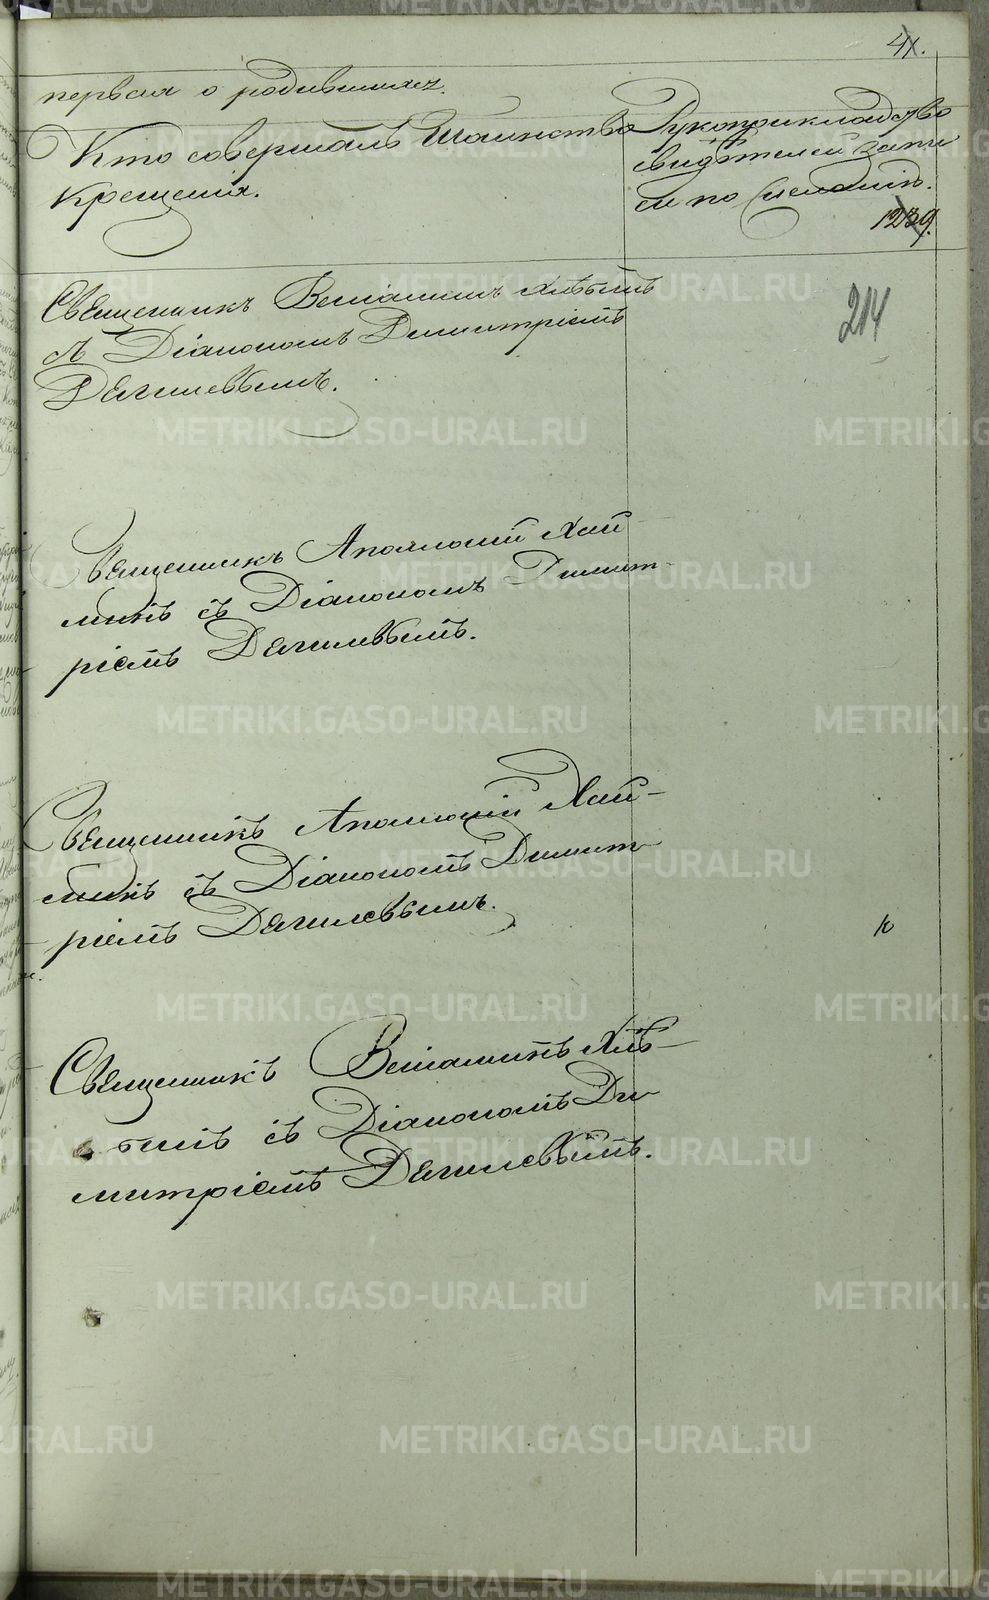 41.
первая о родившихся.
Кто совершалъ Таинство
Крещенія.
Рукоприкладство
свидѣтелей записи
по желанію.
1239.
214
Священникъ Веніаминъ Хлѣбинъ
съ Діакономъ Димитріемъ
Дягилевымъ.
Священникъ Аполлоній Хай
минъ съ Діакономъ Димит-
ріемъ Дягилевымъ.
Священникъ Аполлоній Хай-
минъ съ Діакономъ Димит
ріемъ Дягилевымъ.
Священникъ Веніаминъ Хлѣ-
бинъ съ Діакономъ Ди
митріемъ Дягилевымъ.
METRIKI.GASO-URAL.RU